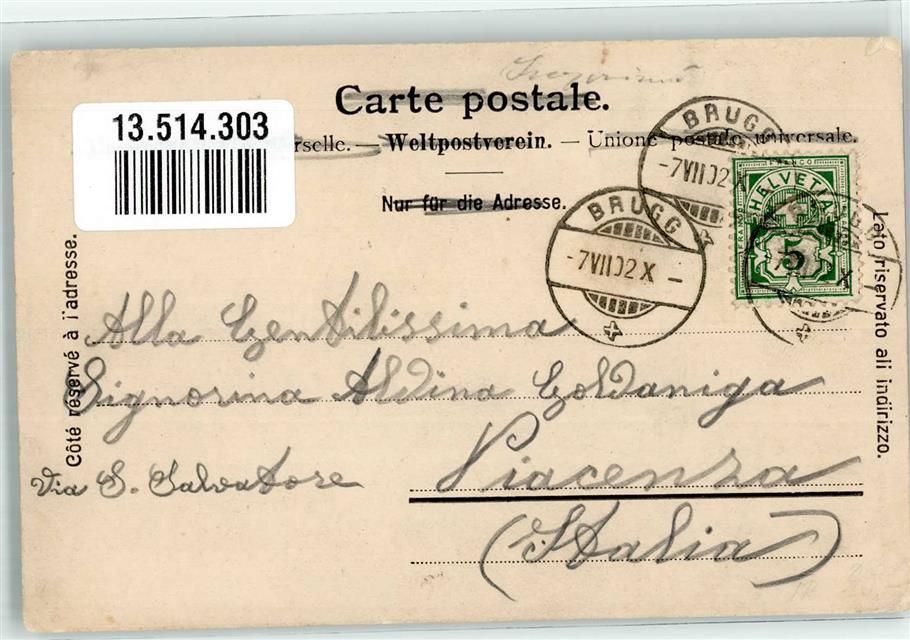 Carte postale.
13.514.303
rselle. — Weltpostverein. — Unione postale universale.
Nur für die Adresse.
BRUGG
-7VII02X
BRUGG
-7VII02X-
FRANCO
HELVETIA
5
X
Côté réservé à l'adresse.
Lato riservato all indirizzo.
Alla Gentilissima
Signorina Aldina Goldaniga
Via S. Salvatore Piacenza
(Italia)